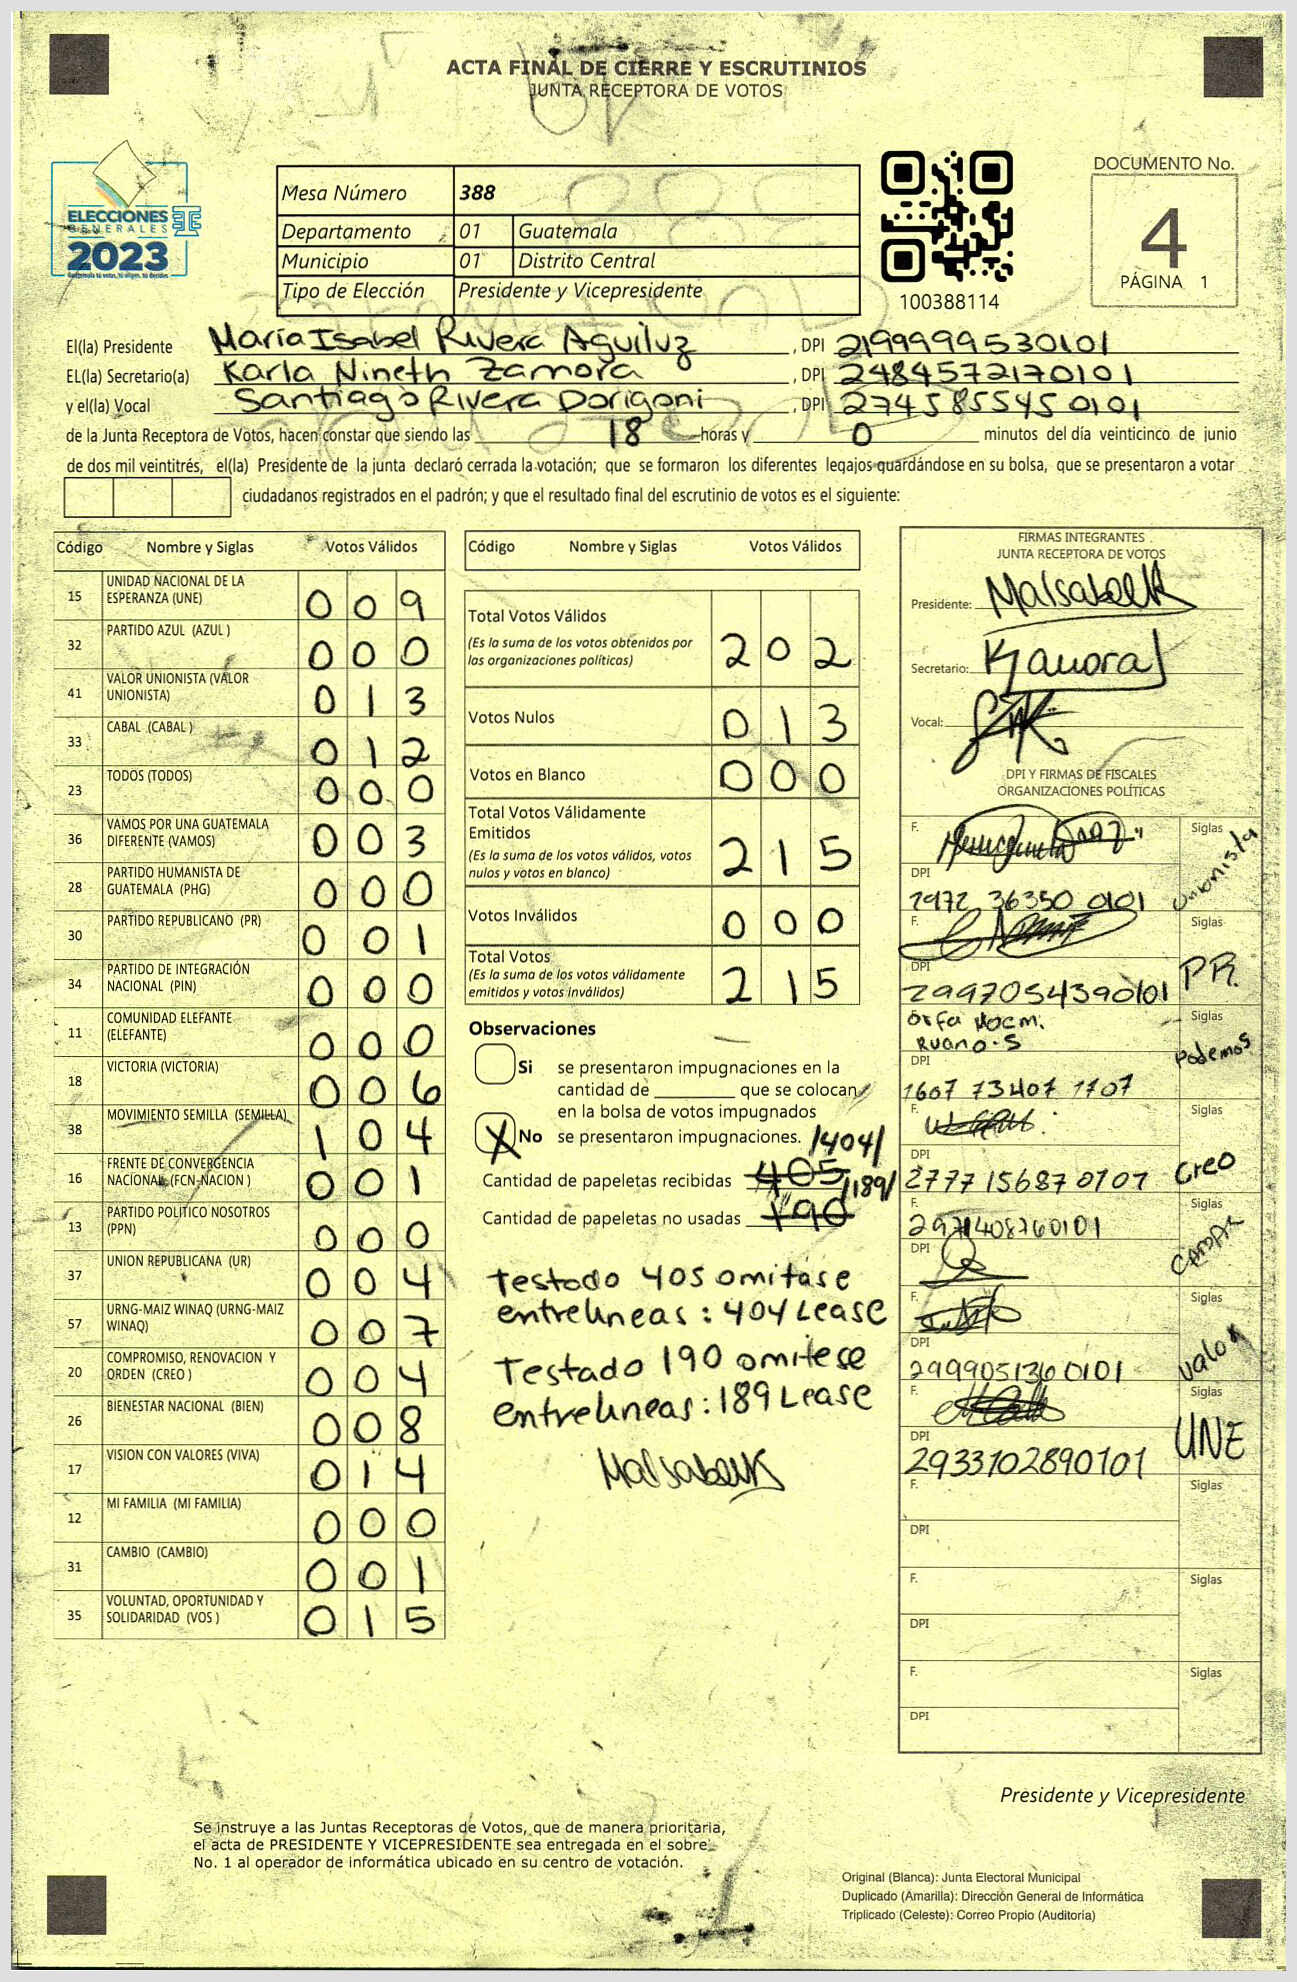 ACTA FINAL DE CIERRE Y ESCRUTINIOS
JUNTA RECEPTORA DE VOTOS
ELECCIONES
GENERALES
2023
Mesa Número 388
Departamento 01 Guatemala
Municipio 01 Distrito Central
Tipo de Elección Presidente y Vicepresidente
100388114
DOCUMENTO No.
4
PÁGINA 1
El(la) Presidente María Isabel Rivera Aguiluz, DPI 2199999530101
EL(la) Secretario(a) Karla Nineth Zamora, DPI 2484572170101
y el(la) Vocal Santiago Rivera Dorigoni, DPI 2745855450101
de la Junta Receptora de Votos, hacen constar que siendo las 18 horas y 0 minutos del día veinticinco de junio
de dos mil veintitrés, el(la) Presidente de la junta declaró cerrada la votación; que se formaron los diferentes legajos guardándose en su bolsa, que se presentaron a votar
ciudadanos registrados en el padrón; y que el resultado final del escrutinio de votos es el siguiente:
Código Nombre y Siglas Votos Válidos
15 UNIDAD NACIONAL DE LA ESPERANZA (UNE) 0 0 9
32 PARTIDO AZUL (AZUL ) 0 0 0
41 VALOR UNIONISTA (VALOR UNIONISTA) 0 1 3
33 CABAL (CABAL ) 0 1 2
23 TODOS (TODOS) 0 0 0
36 VAMOS POR UNA GUATEMALA DIFERENTE (VAMOS) 0 0 3
28 PARTIDO HUMANISTA DE GUATEMALA (PHG) 0 0 0
30 PARTIDO REPUBLICANO (PR) 0 0 1
34 PARTIDO DE INTEGRACIÓN NACIONAL (PIN) 0 0 0
11 COMUNIDAD ELEFANTE (ELEFANTE) 0 0 0
18 VICTORIA (VICTORIA) 0 0 6
38 MOVIMIENTO SEMILLA (SEMILLA) 1 0 4
16 FRENTE DE CONVERGENCIA NACIONAL (FCN-NACION ) 0 0 1
13 PARTIDO POLITICO NOSOTROS (PPN) 0 0 0
37 UNION REPUBLICANA (UR) 0 0 4
57 URNG-MAIZ WINAQ (URNG-MAIZ WINAQ) 0 0 7
20 COMPROMISO, RENOVACION Y ORDEN (CREO ) 0 0 4
26 BIENESTAR NACIONAL (BIEN) 0 0 8
17 VISION CON VALORES (VIVA) 0 1 4
12 MI FAMILIA (MI FAMILIA) 0 0 0
31 CAMBIO (CAMBIO) 0 0 1
35 VOLUNTAD, OPORTUNIDAD Y SOLIDARIDAD (VOS ) 0 1 5
Código Nombre y Siglas Votos Válidos
Total Votos Válidos 2 0 2
(Es la suma de los votos obtenidos por
las organizaciones políticas)
Votos Nulos 0 1 3
Votos en Blanco 0 0 0
Total Votos Válidamente
Emitidos 2 1 5
(Es la suma de los votos válidos, votos
nulos y votos en blanco)
Votos Inválidos 0 0 0
Total Votos 2 1 5
(Es la suma de los votos válidamente
emitidos y votos inválidos)
Observaciones
Si se presentaron impugnaciones en la
cantidad de ________ que se colocan
en la bolsa de votos impugnados
X No se presentaron impugnaciones. /404/
Cantidad de papeletas recibidas 405 /189/
Cantidad de papeletas no usadas 190
Testado 405 omitase
entrelineas: 404 Lease
Testado 190 omitese
entrelineas: 189 Lease
FIRMAS INTEGRANTES
JUNTA RECEPTORA DE VOTOS
Presidente:
Secretario:
Vocal:
DPI Y FIRMAS DE FISCALES
ORGANIZACIONES POLÍTICAS
F. Siglas Unionista
DPI 2972 36350 0101
F. Siglas PR.
DPI 2997054390101
Orfa Noemi. Siglas Podemos
Ruano.S
DPI 1607 73407 1707
F. Siglas Creo
DPI 2777 15687 0101
F. Siglas
2971408760101
DPI
F. Siglas Valor
DPI 2999051360101
F. Siglas UNE
DPI 2933102890101
F. Siglas
DPI
F. Siglas
DPI
F. Siglas
DPI
Presidente y Vicepresidente
Se instruye a las Juntas Receptoras de Votos, que de manera prioritaria,
el acta de PRESIDENTE Y VICEPRESIDENTE sea entregada en el sobre
No. 1 al operador de informática ubicado en su centro de votación.
Original (Blanca): Junta Electoral Municipal
Duplicado (Amarilla): Dirección General de Informática
Triplicado (Celeste): Correo Propio (Auditoria)